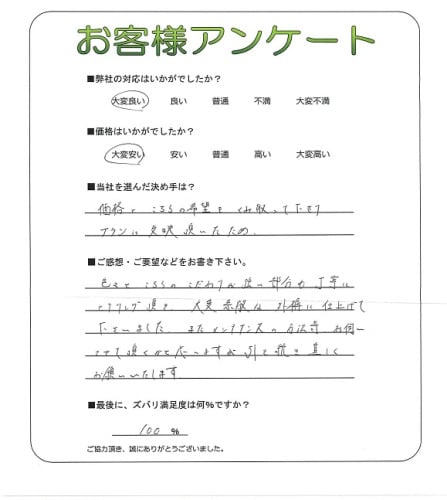 お客様アンケート
■弊社の対応はいかがでしたか?
大変良い 良い 普通 不満 大変不満
■価格はいかがでしたか?
大変安い 安い 普通 高い 大変高い
■当社を選んだ決め手は?
価格とこちらの希望をくみ取って下さり
プランに反映頂いたため.
■ご感想・ご要望などをお書き下さい。
色々とこちらのこだわりが強い部分も丁寧に
ヒアリング頂き、大変素敵な外構に仕上げて
下さいました。またメンテナンスの方法等、お伺い
させて頂くかと思いますが引き続き宜しく
お願いいたします
■最後に、ズバリ満足度は何%ですか?
100 %
ご協力頂き、誠にありがとうございました。